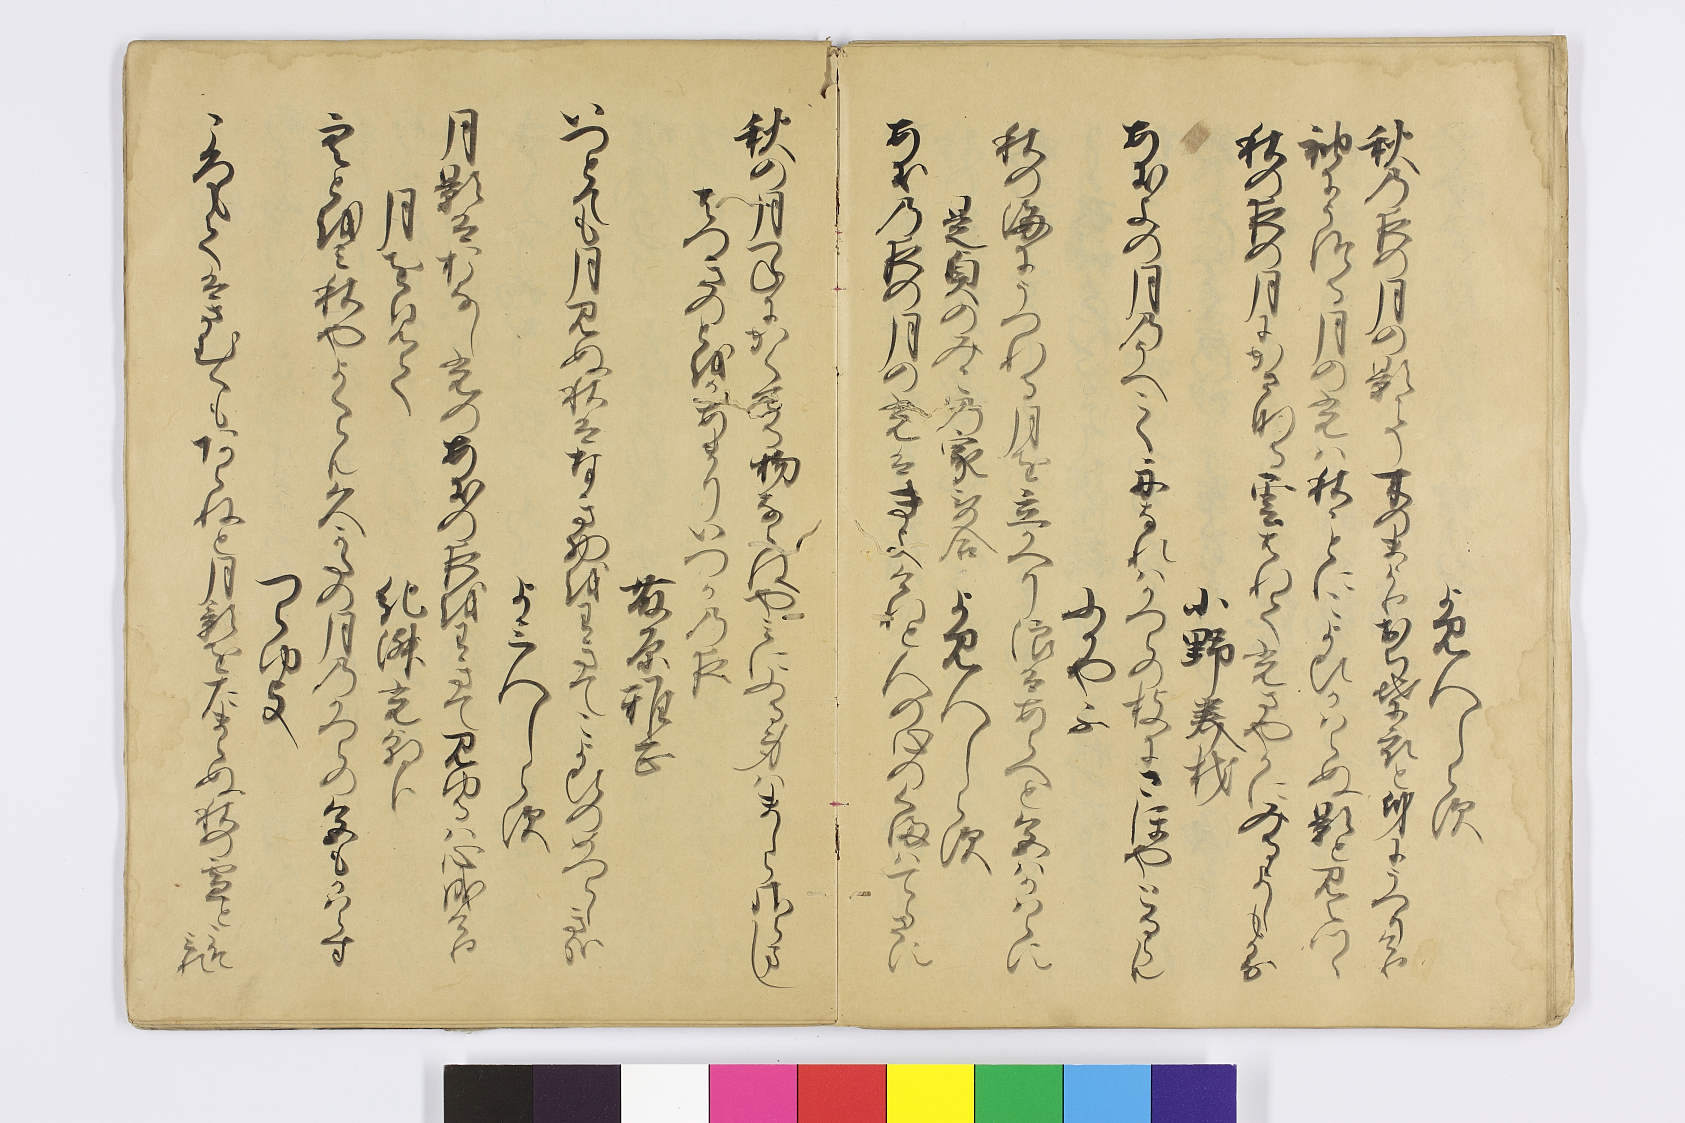 よみ人しらす
秋乃夜の月の影こそ木のまよりおちは衣と身にうつりけれ
袖にうつる月の光は秋ことにこよひかはらぬ影と見えつゝ
秋の夜の月にかさなる雲はれて光さやかにみるよしもかな
小野美材
あきの月乃うへにこく舟なれはかつらの枝にさほやさはらん
ふかやふ
秋の海にうつれる月を立かへり浪はあらへと色はかはらす
是貞のみこの家哥合
よみ人しらす
あき乃夜の月の光はきよけれと人の心のくまはてらさす
秋の月つねにかくてる物ならはやみにふる身はましらさらまし
はつきのとをかあまりいつか乃夜
藤原雅正
いつとても月見ぬ秋はなきものをわきてこよひのめつらしきかな
よみ人しらす
月影はおなし光のあきの夜をわきて見ゆるは心成けり
月をみて
紀淑光朝臣
空とをみ秋やよくらん久かたの月乃かつらの色もかはらす
つらゆき
ころもてはさむくもあらねと月影をたまらぬ秋の雪とこそみれ